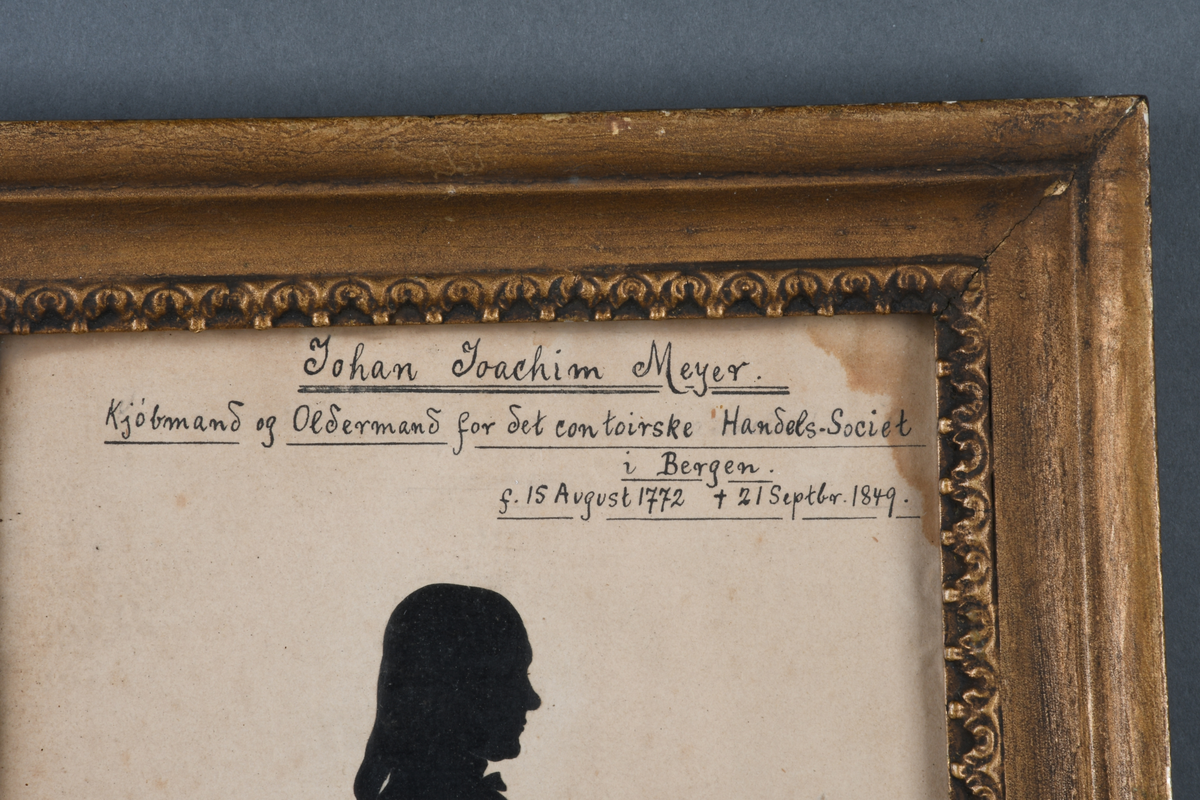 Johan Joachim Meyer.
Kjóbmand og Oldermand for det contoirske Handels-Societ
i Bergen.
f. 15 August 1772 † 21 Septbr. 1849.